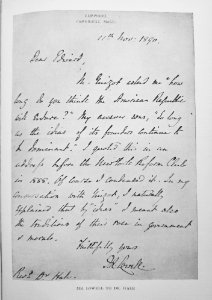 11th Nov: 1890.
Dear Edward,
M. Guizot asked me "how
long do you think the American Republic
will endure?" My answer was, "So long
as the ideas of its founders continue to
be dominant." I quoted this in an
address before the New York Reform Club
in 1888. Of course I condensed it. In my
conversation with Guizot, I naturally
explained that by "ideas" I meant also
the traditions of their race in government
& morals.
Faithfully yours
J. R. Lowell.
Revd. Dr. Hale.
MR. LOWELL TO DR. HALE